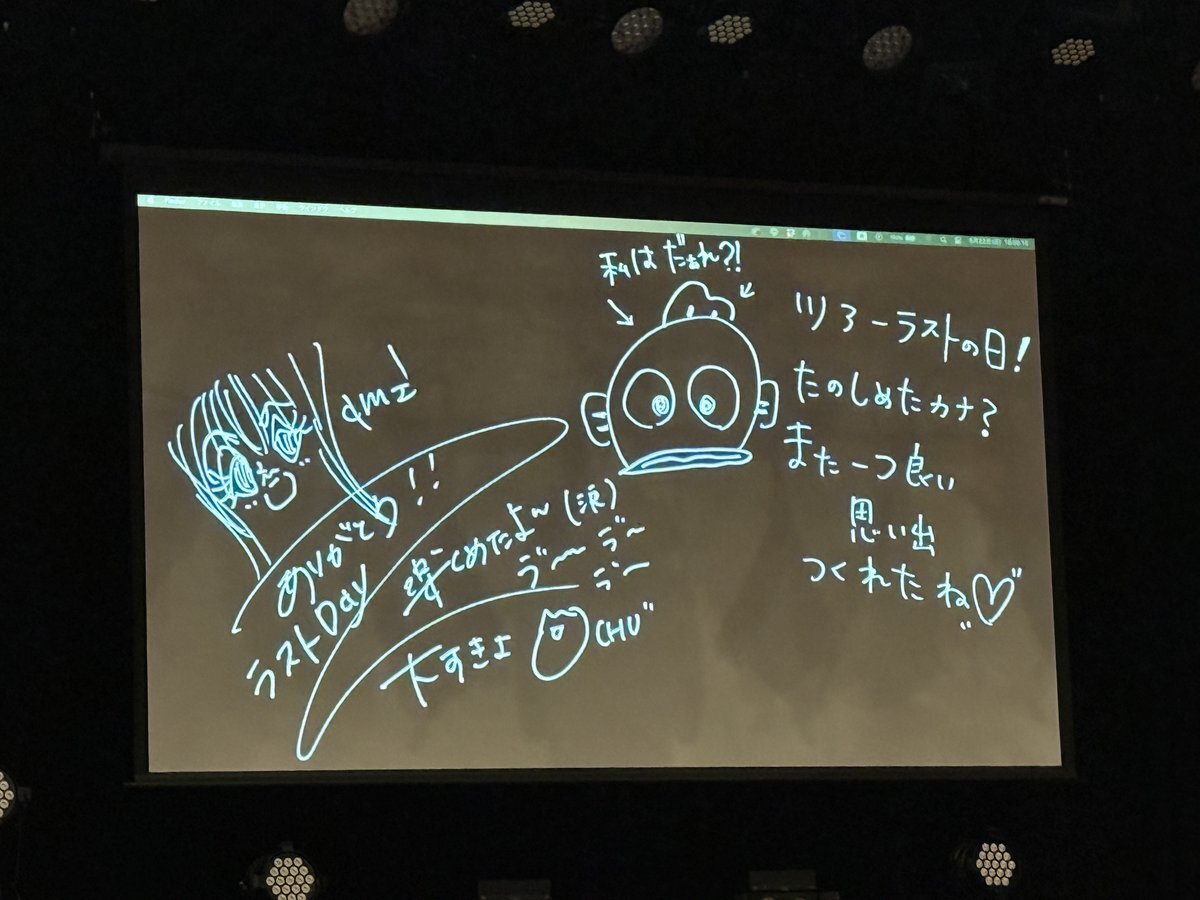 私はだぁれ?!
ツアーラストの日!
たのしめたカナ?
また一つ良い
思い出
つくれたね♡
ありがと!!
ラストDay
楽しめたよ〜(涙)
大すきよ
CHU